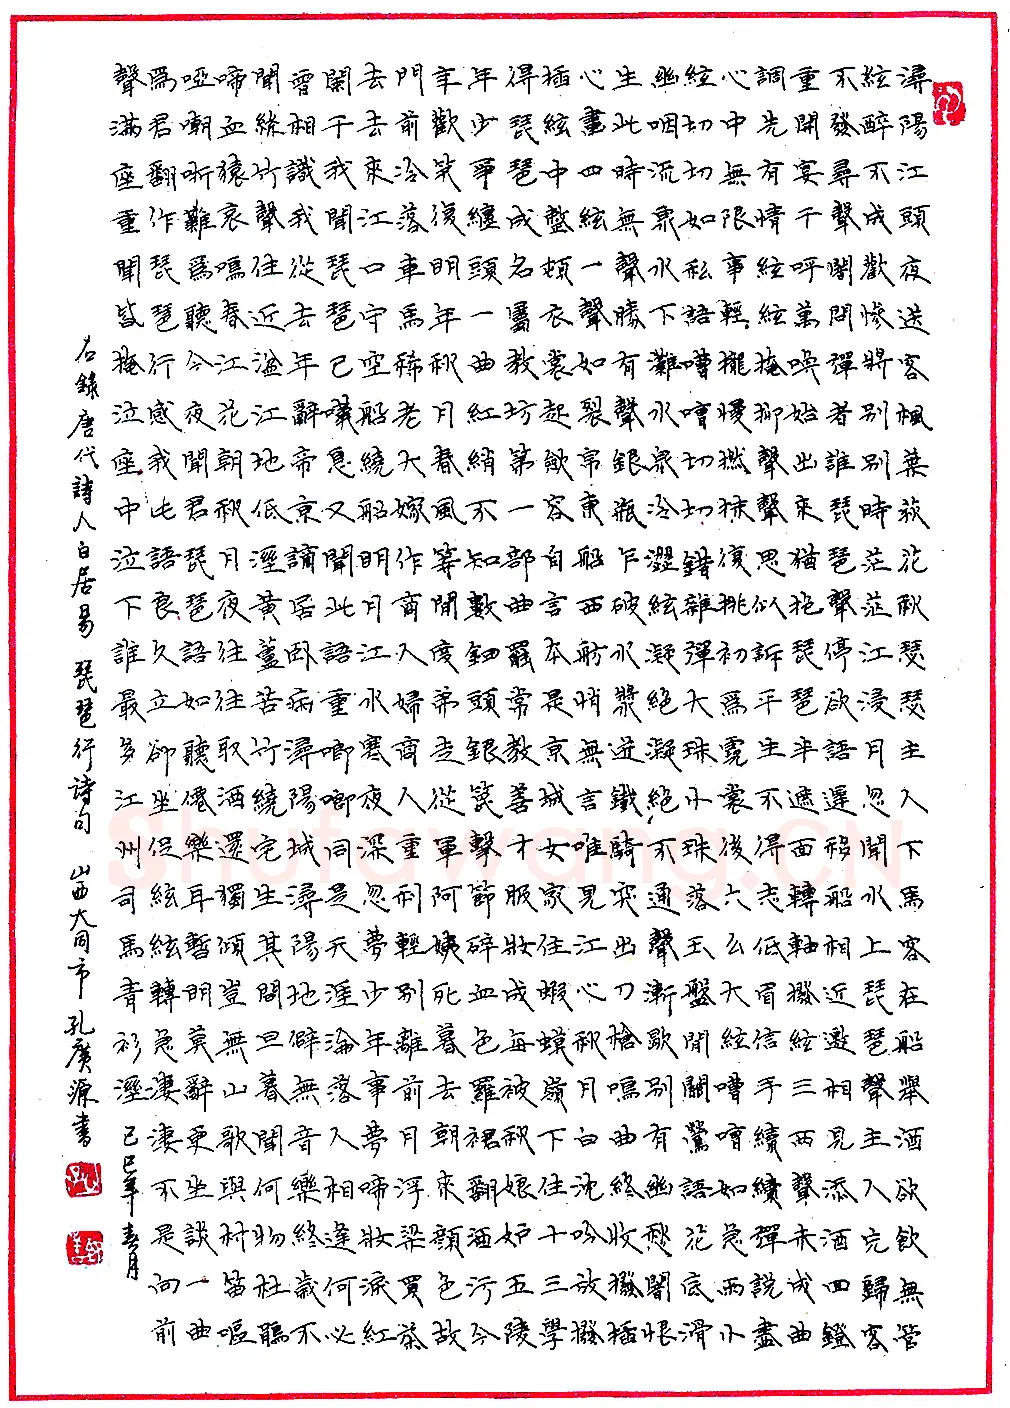 潯陽江頭夜送客楓葉荻花秋瑟瑟主人下馬客在船舉酒欲飲無管
絃醉不成歡慘將別別時茫茫江浸月忽聞水上琵琶聲主人忘歸客
不發尋聲闇問彈者誰琵琶聲停欲語遲移船相近邀相見添酒回鐙
重開宴千呼萬喚始出來猶抱琵琶半遮面轉軸撥絃三兩聲未成曲
調先有情絃絃掩抑聲聲思似訴平生不得志低眉信手續續彈說盡
心中無限事輕攏慢撚抹復挑初為霓裳後六么大絃嘈嘈如急雨小
絃切切如私語嘈嘈切切錯雜彈大珠小珠落玉盤閒關鶯語花底滑
幽咽流泉水下灘水泉冷澀絃凝絕凝絕不通聲漸歇別有幽愁闇恨
生此時無聲勝有聲銀瓶乍破水漿迸鐵騎突出刀槍鳴曲終收撥插
心畫四絃一聲如裂帛東船西舫悄無言唯見江心秋月白沈吟放撥
插絃中整頓衣裳起斂容自言本是京城女家住蝦蟆嶺下住十三學
得琵琶成名屬教坊第一部曲罷常教善才服妝成每被秋娘妒五陵
年少爭纏頭一曲紅綃不知數鈿頭銀篦擊節碎血色羅裙翻酒污今
年歡笑復明年秋月春風等閒度弟走從軍阿姨死暮去朝來顏色故
門前冷落車馬稀老大嫁作商人婦商人重利輕別離前月浮梁買茶
去去來江口守空船繞船明月江水寒夜深忽夢少年事夢啼妝淚紅
闌干我聞琵琶已嘆息又聞此語重唧唧同是天涯淪落人相逢何必
曾相識我從去年辭帝京謫居臥病潯陽城潯陽地僻無音樂終歲不
聞絲竹聲住近湓江地低溼黃蘆苦竹繞宅生其間旦暮聞何物杜鵑
啼血猿哀鳴春江花朝秋月夜往往取酒還獨傾豈無山歌與村笛嘔
啞嘲哳難為聽今夜聞君琵琶語如聽僊樂耳暫明莫辭更坐談一曲
為君翻作琵琶行感我此語良久立卻坐促絃絃轉急淒淒不是向前
聲滿座重聞皆掩泣座中泣下誰最多江州司馬青衫溼 己巳年春月
右錄唐代詩人白居易 琵琶行詩句 山西大同市孔廣源書
Shufawang.CN